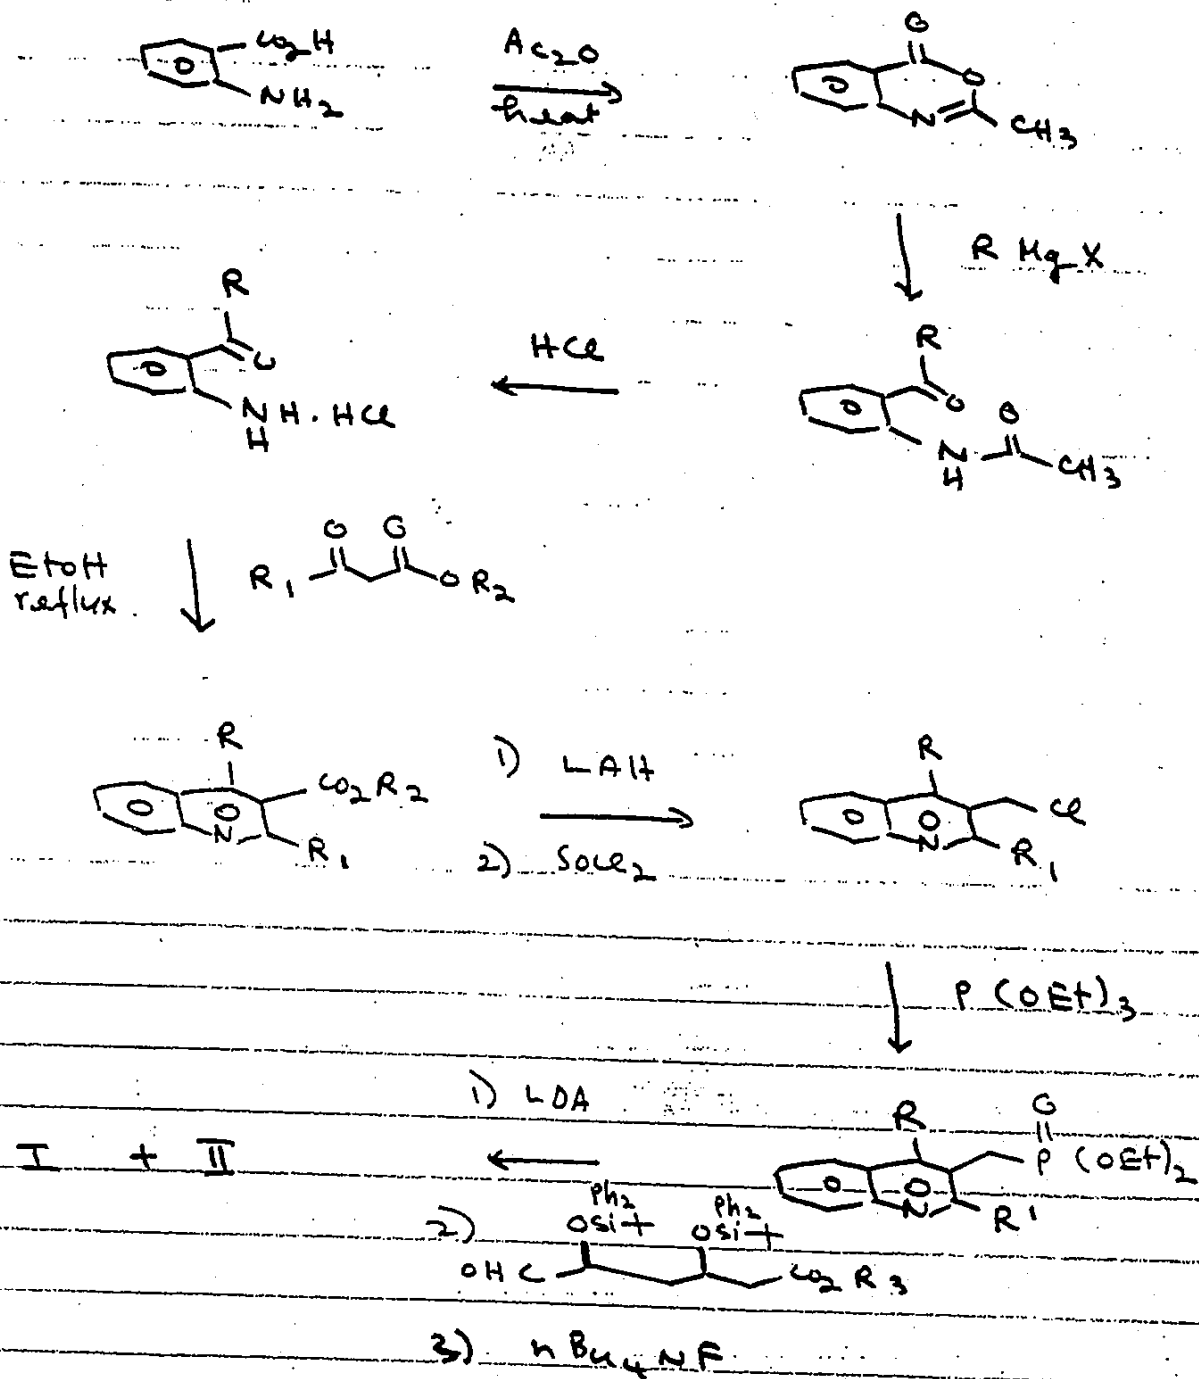 CO2H
NH2
Ac2O
heat
O
O
N
CH3
R MgX
R
O
NH.HCl
H
HCl
R
O
O
N
H
CH3
EtOH
reflux.
O O
R1 OR2
R
CO2R2
N
R1
1) LAH
2) SOCl2
R
Cl
N
R1
P(OEt)3
I + II
1) LDA
2)
Ph2 Ph2
OSi OSi
OHC CO2R3
3) nBu4NF
R
O
P(OEt)2
N
R1